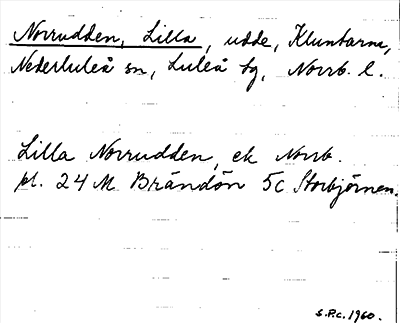 Norrudden, Lilla, udde, Kluntarna,
Nederluleå sn, Luleå tg, Norrb. l.
Lilla Norrudden, ek Norrb.
pl. 24 M Brändön 5c Storbjörnen.
S.P.c. 1960.